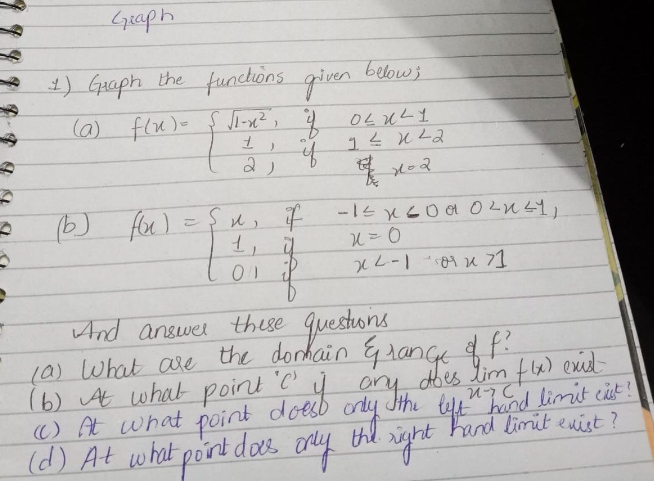 Graph
1) Graph the functions given below;
(a) f(x) = { √1-x², if 0 < x < 1
1, if 1 ≤ x < 2
2, if x = 2
(b) f(x) = { x, if -1 ≤ x < 0 or 0 < x ≤ 1,
1, if x = 0
0, if x < -1 or x > 1
And answer these questions
(a) What are the domain & range of f?
(b) At what point 'c' if any does lim f(x) exist
x→c
(c) At what point does only the left hand limit exist?
(d) At what point does only the right hand limit exist?